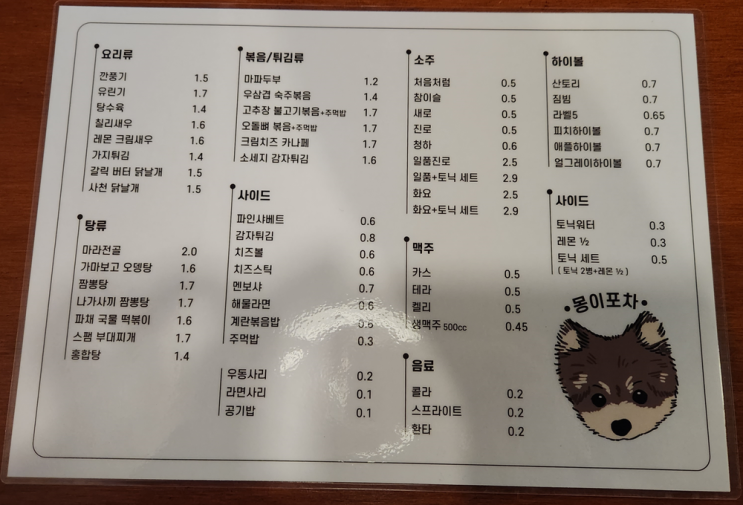 요리류
깐풍기 1.5
유린기 1.7
탕수육 1.4
칠리새우 1.6
레몬 크림새우 1.6
가지튀김 1.4
갈릭 버터 닭날개 1.5
사천 닭날개 1.5
탕류
마라전골 2.0
가마보고 오뎅탕 1.6
짬뽕탕 1.7
나가사끼 짬뽕탕 1.7
파채 국물 떡볶이 1.6
스팸 부대찌개 1.7
홍합탕 1.4
볶음/튀김류
마파두부 1.2
우삼겹 숙주볶음 1.4
고추장 불고기볶음+주먹밥 1.7
오돌뼈 볶음+주먹밥 1.7
크림치즈 카나페 1.7
소세지 감자튀김 1.6
사이드
파인샤베트 0.6
감자튀김 0.8
치즈볼 0.6
치즈스틱 0.6
멘보샤 0.7
해물라면 0.6
계란볶음밥 0.6
주먹밥 0.3
우동사리 0.2
라면사리 0.1
공기밥 0.1
소주
처음처럼 0.5
참이슬 0.5
새로 0.5
진로 0.5
청하 0.6
일품진로 2.5
일품+토닉 세트 2.9
화요 2.5
화요+토닉 세트 2.9
맥주
카스 0.5
테라 0.5
켈리 0.5
생맥주 500cc 0.45
음료
콜라 0.2
스프라이트 0.2
환타 0.2
하이볼
산토리 0.7
짐빔 0.7
라벨5 0.65
피치하이볼 0.7
애플하이볼 0.7
얼그레이하이볼 0.7
사이드
토닉워터 0.3
레몬 ½ 0.3
토닉 세트 0.5
( 토닉 2병+레몬 ½ )
몽이포차